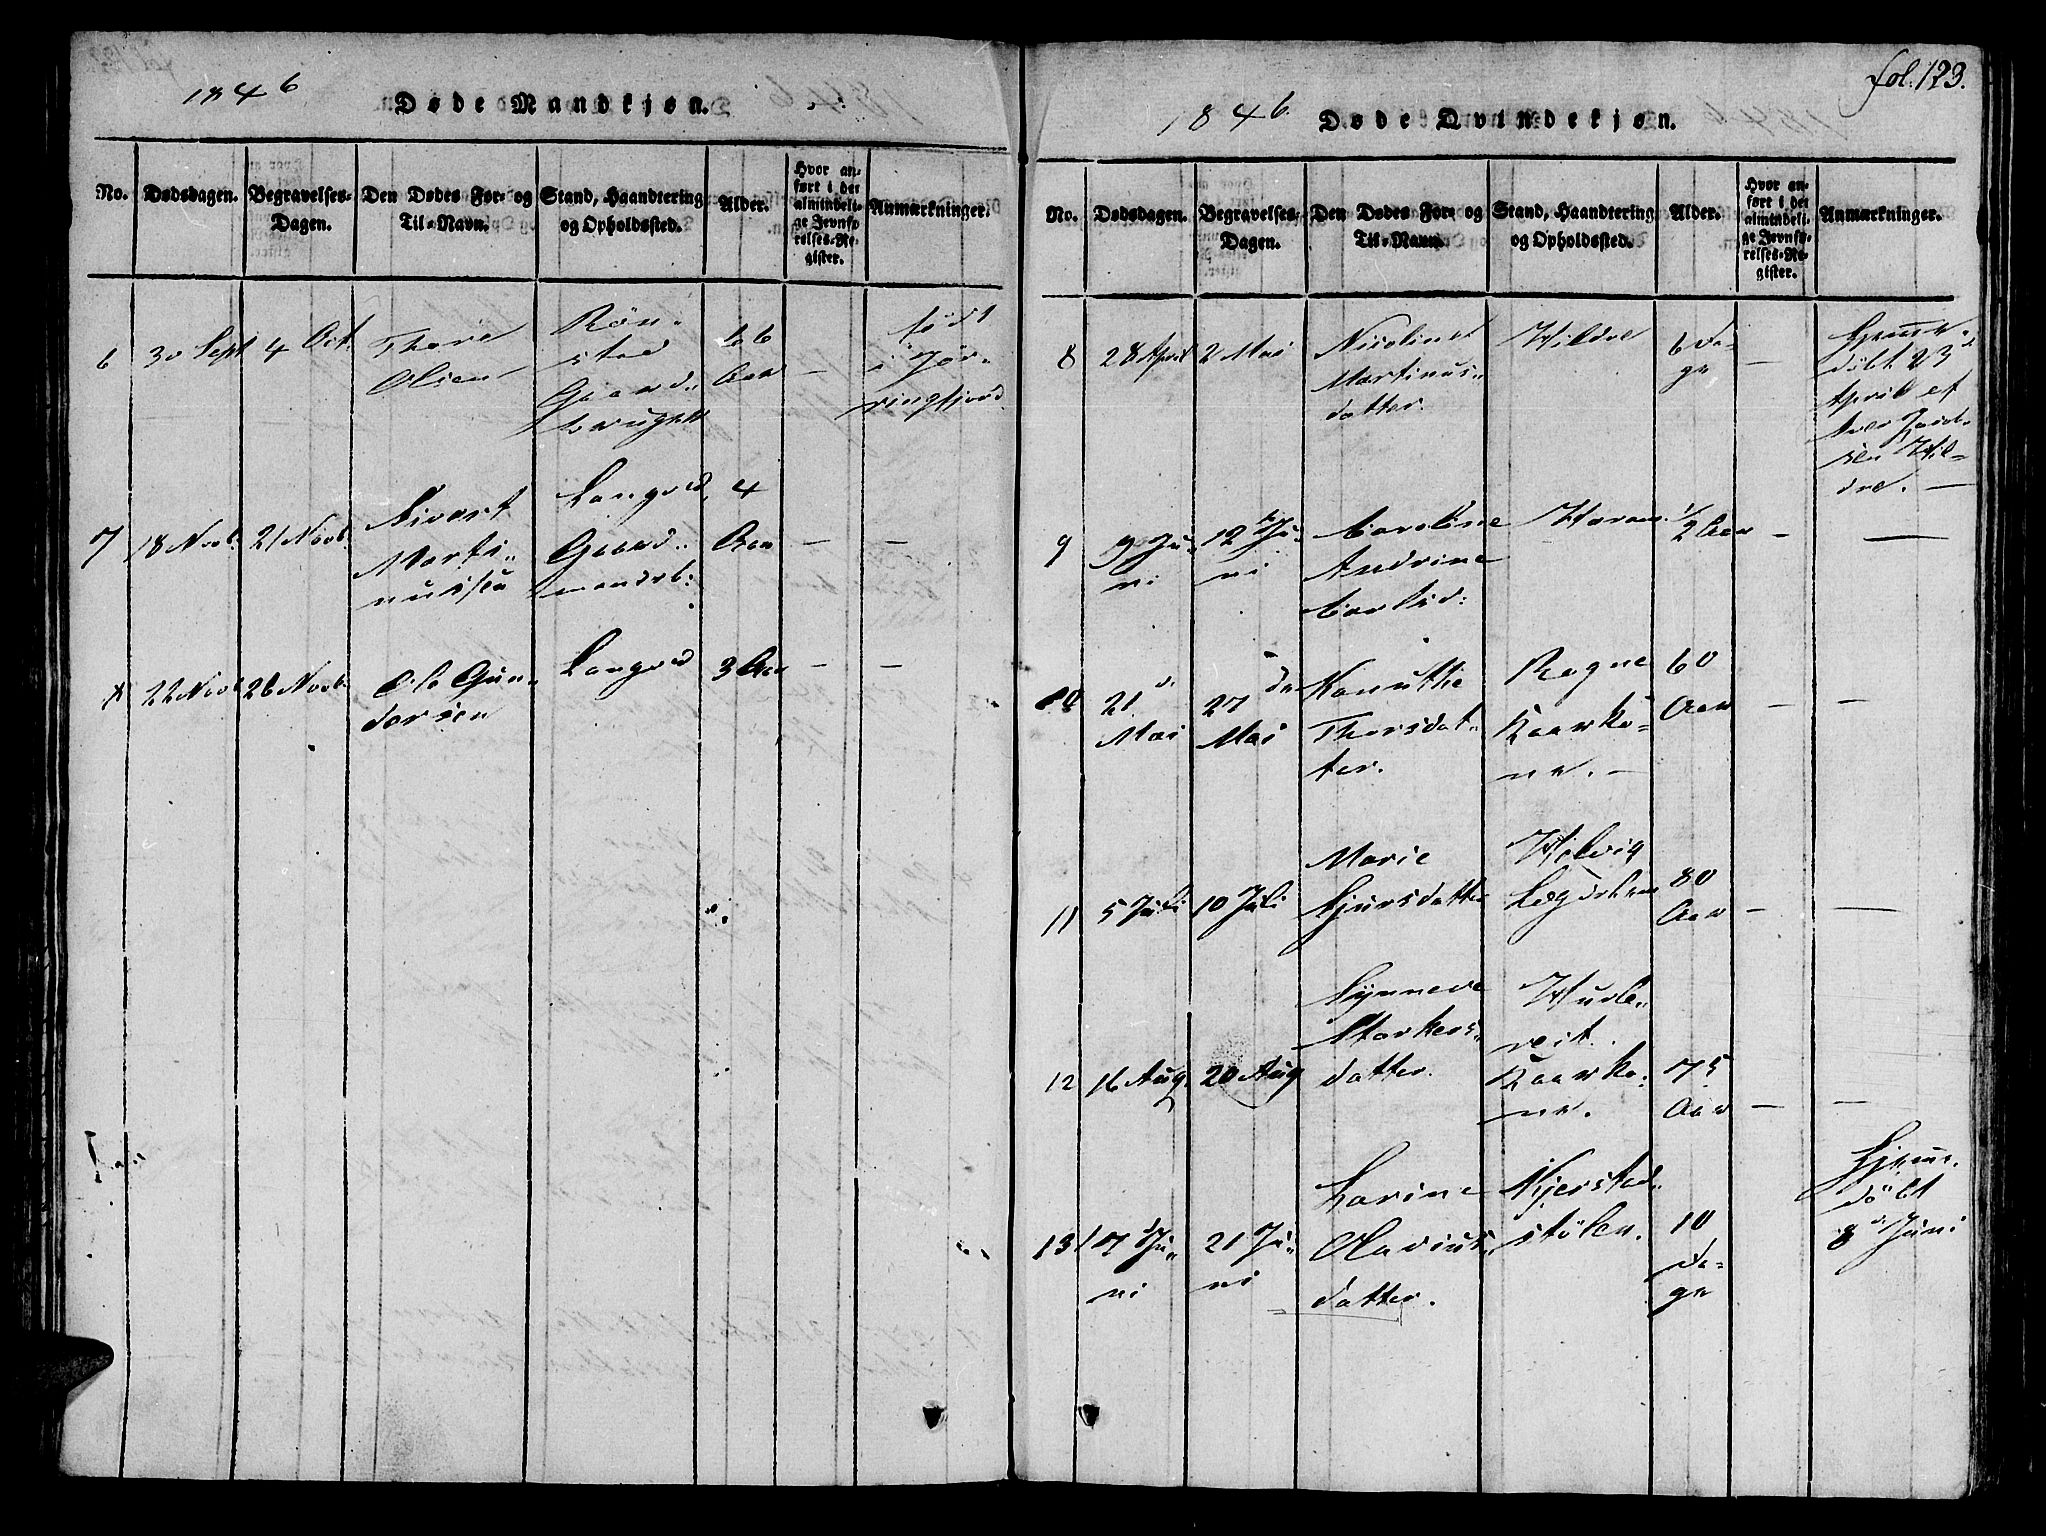 1846
Døde Mandkjøn.
No. Dødsdagen. Begravelses-Dagen. Den Dødes For- og Til-Navn. Stand, Haandtering og Opholdssted. Alder. Hvor anført i det almindelige Jevnførelses-Register. Anmærkninger.
6 30 Sept 4 Oct. Thore Olsen Rønstad Gaardbruger 66 Aar — født i Jøringfjord
7 18 Novb. 21 Novb. Sivert Martinussen Langvad Gaardmandsb: 4 Aar — —
8 22 Novb 26 Novb. Ole Gundersen Langvad 3 Aar — —
fol. 123.
1846.
Døde Qvindekjøn.
No. Dødsdagen. Begravelses-Dagen. Den Dødes For- og Til-Navn. Stand, Haandtering og Opholdssted. Alder. Hvor anført i det almindelige Jevnførelses-Register. Anmærkninger.
8 28 April 2 Mai Nicoline Martinusdatter. Hildre 6 Dage — Hjemmedøbt 23 April af Iver Hildre. —
9 9 Juni 12 Juni Caroline Andrine Carlsd: Haram. 1/2 Aar — —
10 21 Mai 27 Mai Kanuthe Thorsdatter. Rogne Kaarkone. — 60 Aar — —
11 5 Juli 10 Juli Marie Sjursdatter Helvig Lægdslem 80 Aar — —
12 16 Aug. 20 Aug Synneve Starkersdatter. Hurlereit. Kaarkone. 75 Aar — —
13 17 Juni 21 Juni Larine Olaviusdatter. Kjerstadstølen. 10 Dage Hjemmedøbt 8 Juni